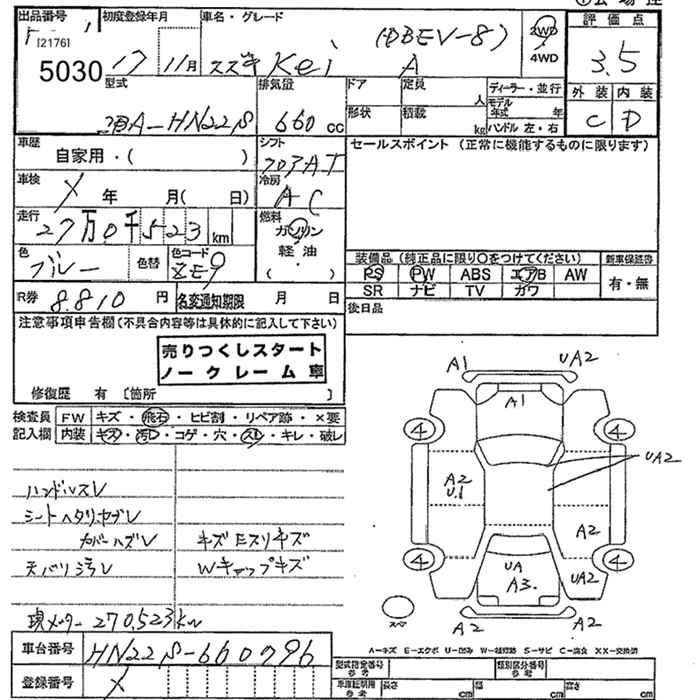 出品番号 初度登録年月 車名・グレード 評価点
[21761 17 11月 スズキ Kei (DBEV-8) 2WD 3.5
5030 A 4WD
型式 排気量 ドア 定員 ディーラー・並行 外装 内装
人 モデル年式 年 C D
-HN22S 660cc 形状 積載 kg ハンドル 左・右
車歴 シフト セールスポイント (正常に機能するものに限ります)
自家用・( ) フロアAT
車検 冷房
X 年 月( 日) AC
走行 燃料
27万0千523km ガソリン
色 色替 色コード 軽油 装備品 (純正品に限り○をつけてください) 新車保証書
ブルー ZE9 ( ) PS PW ABS エアB AW 有・無
SR ナビ TV カワ
R券 8.810円 名変通知期限 月 日 後日品
注意事項申告欄(不具合内容等は具体的に記入して下さい)
売りつくしスタート
ノークレーム車
修復歴 有 [箇所 ]
検査員 FW キズ・飛石・ヒビ割・リペア跡・×要
記入欄 内装 キズ・汚レ・コゲ・穴・スレ・キレ・破レ
A1 UA2
A1
4 4
UA2
A2
U.1
A2
4 4
UA UA2
A3.
スペア A2 A2
ハンドルスレ
シートヘタリ・ヤブレ
カバーハズレ キズ
天バリ汚レ Wキャップキズ
現メーター 270,523km
A-キズ E-エクボ U-凹み W-補修跡 S-サビ C-腐食 XX-交換済
車台番号 HN22S-660796 型式指定番号 参考 類別区分番号 参考
登録番号 X 車庫証明用 参考 長さ cm 幅 cm 高さ cm